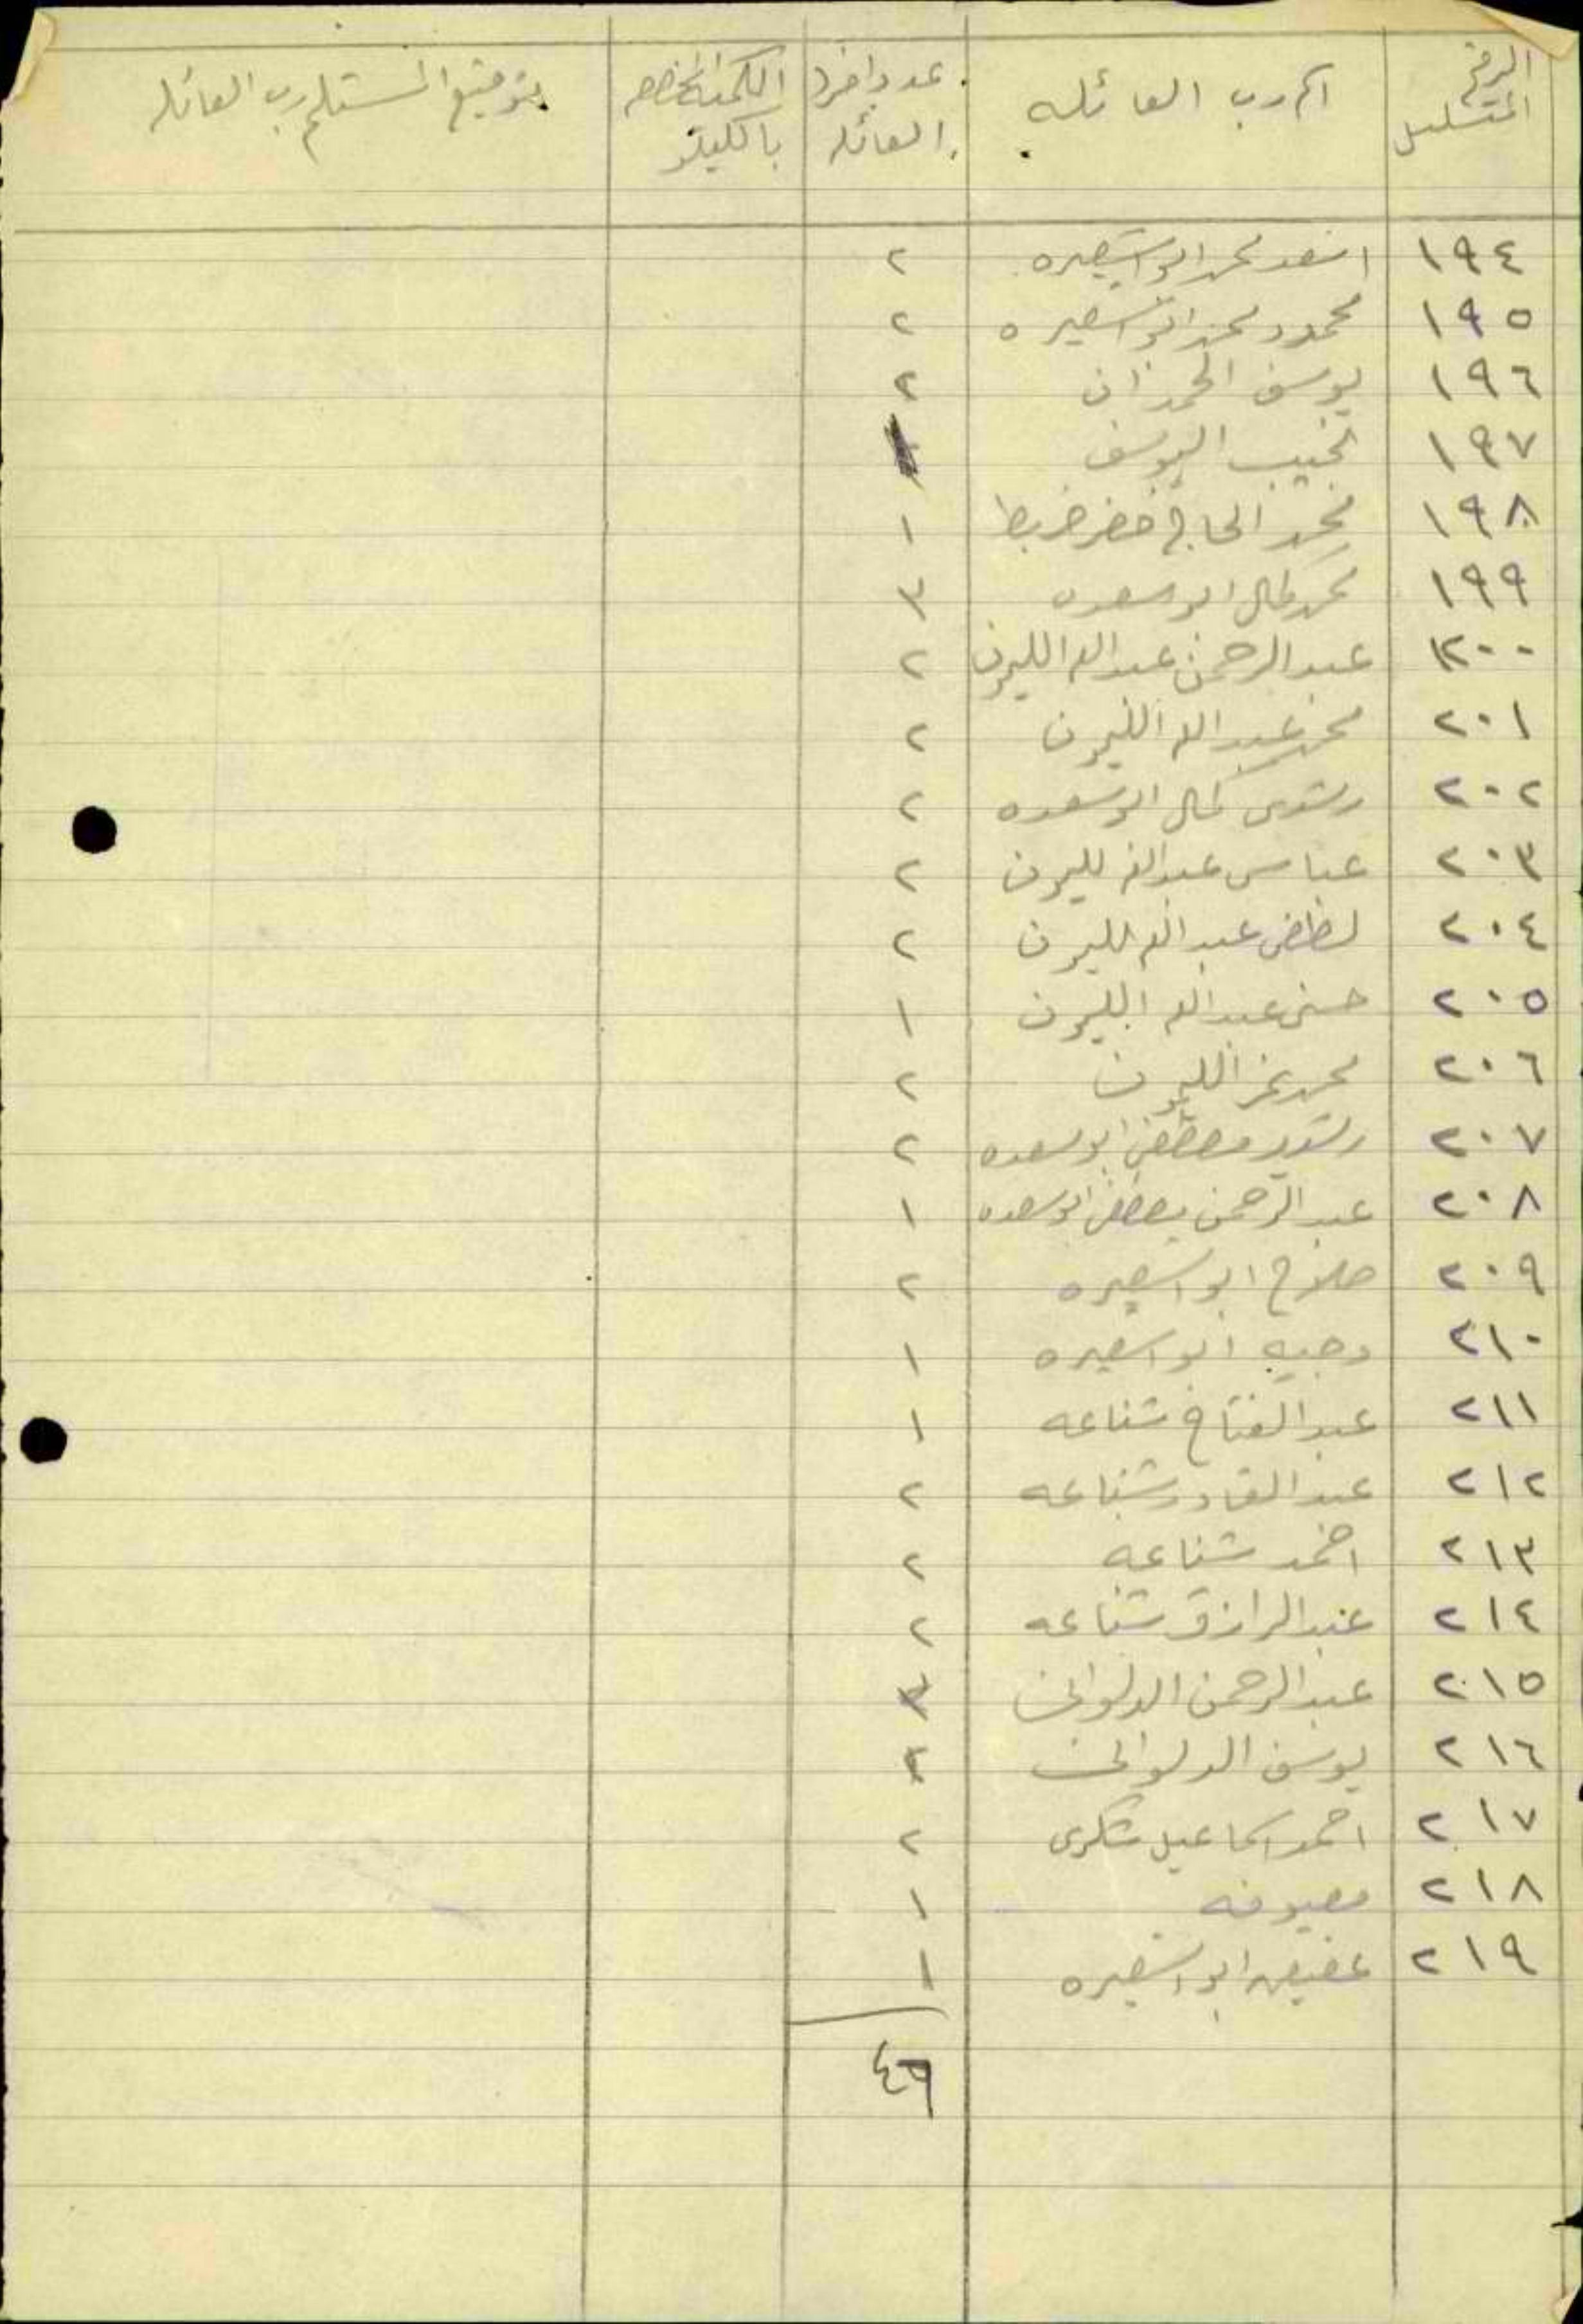 الرقم المتسلسل | اسم رب العائله | عدد افراد العائله | الكميه المخصصه بالكيلو | توقيع المستلم رب العائله
١٩٤ اسعد محمد ابو اسبيره ٢
١٩٥ محمود محمد ابو اسبيره ٢
١٩٦ يوسف الحمدان ٢
١٩٧ نجيب اليوسف
١٩٨ محمد الحاج خضر ضربط ١
١٩٩ محمد كمال ابو سعده ٣
٢٠٠ عبد الرحمن عبد الله الليمون ٢
٢٠١ محمد عبد الله الليمون ٢
٢٠٢ رشدي كمال ابو سعده ٢
٢٠٣ عباس عبد الله الليمون ٢
٢٠٤ لطفي عبد الله الليمون ٢
٢٠٥ حسني عبد الله الليمون ١
٢٠٦ محمد عمر الليمون ٢
٢٠٧ رشيد مصطفى ابو سعده ٢
٢٠٨ عبد الرحمن مصطفى ابو سعده ١
٢٠٩ صلاح ابو اسبيره ٢
٢١٠ وجيه ابو اسبيره ١
٢١١ عبد الفتاح شناعه ١
٢١٢ عبد القادر شناعه ٢
٢١٣ احمد شناعه ٢
٢١٤ عبد الرازق شناعه ٢
٢١٥ عبد الرحمن الدلواني ٣
٢١٦ يوسف الدلواني ٢
٢١٧ احمد اسماعيل شكري ٢
٢١٨ معيوفه ١
٢١٩ عفيف ابو اسبيره ١
٤٦